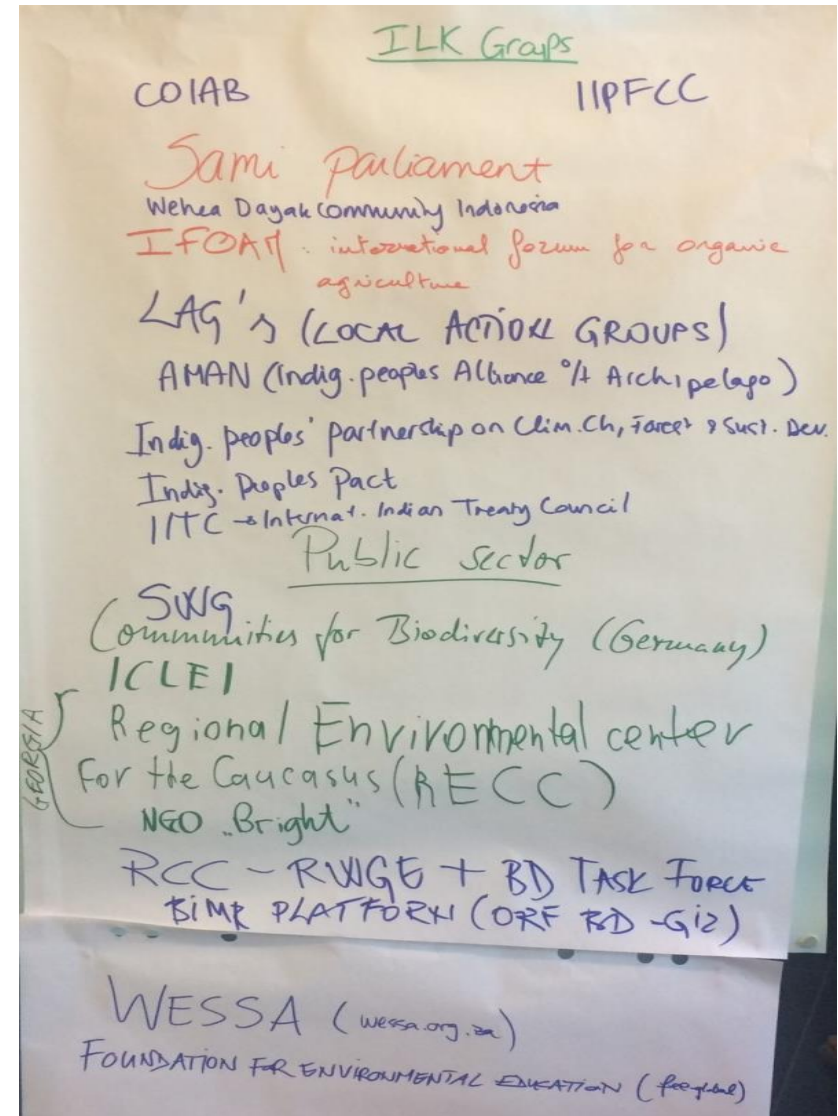 ILK Groups
COIAB IIPFCC
Sami Parliament
Wehea Dayak Community Indonesia
IFOAM: international forum for organic
agriculture
LAG's (LOCAL ACTION GROUPS)
AMAN (Indig. peoples Alliance o/t Archipelago)
Indig. peoples' partnership on Clim. Ch, Forest & Sust. Dev.
Indig. Peoples Pact
IITC → Internat. Indian Treaty Council
Public sector
SWG
Communities for Biodiversity (Germany)
ICLEI
GEORGIA
Regional Environmental center
For the Caucasus (RECC)
NGO „Bright"
RCC - RWGE + BD TASK FORCE
BIMR PLATFORM (ORF BD - GIZ)
WESSA (wessa.org.za)
FOUNDATION FOR ENVIRONMENTAL EDUCATION